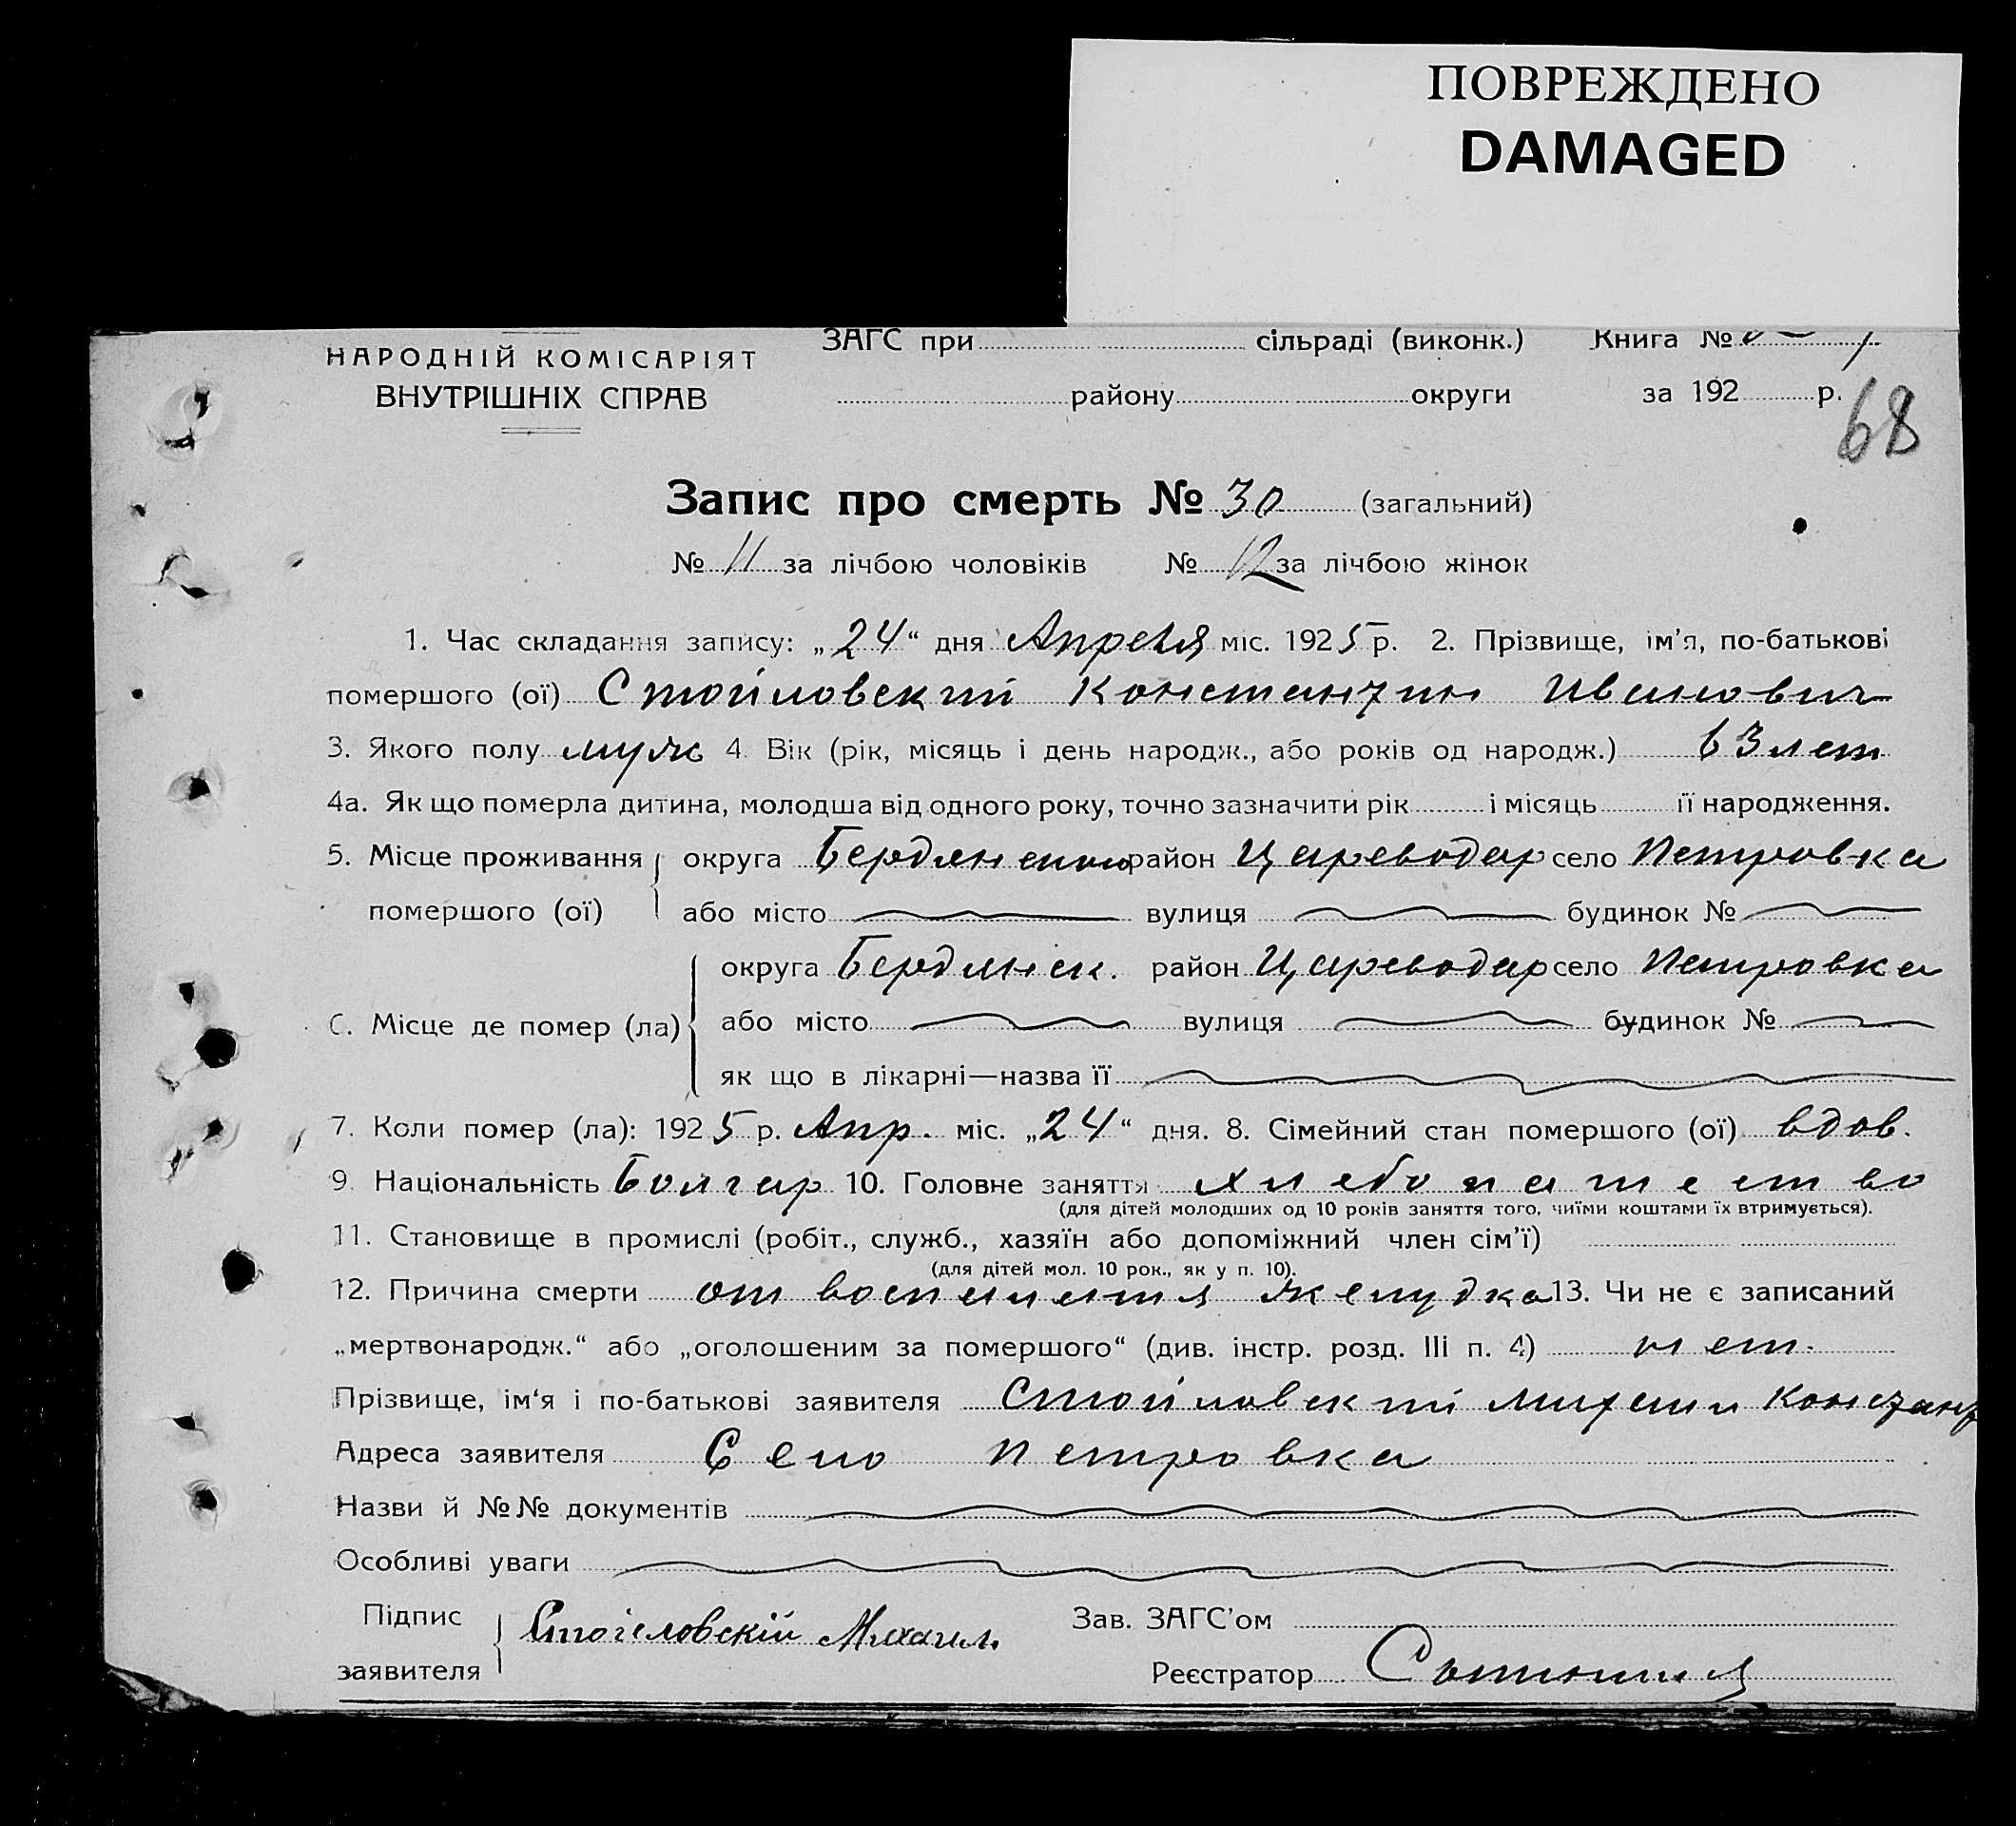 ПОВРЕЖДЕНО
DAMAGED
НАРОДНІЙ КОМІСАРІЯТ
ВНУТРІШНІХ СПРАВ
ЗАГС при сільраді (виконк.) Книга №
району округи за 192 р.
68
Запис про смерть № 30 (загальний)
№ 11 за лічбою чоловіків № 12 за лічбою жінок
1. Час складання запису: „24“ дня Апреля міс. 1925 р. 2. Прізвище, ім'я, по-батькові
помершого (ої) Стойловский Константин Иванович
3. Якого полу муж 4. Вік (рік, місяць і день народж., або років од народж.) 63 лет
4а. Як що померла дитина, молодша від одного року, точно зазначити рік і місяць її народження.
5. Місце проживання помершого (ої) округа район Цареводар село Петровка
або місто вулиця будинок №
6. Місце де помер (ла) округа Бердянск. район Цареводар село Петровка
або місто вулиця будинок №
як що в лікарні—назва її
7. Коли помер (ла): 1925 р. Апр. міс. „24“ дня. 8. Сімейний стан помершого (ої) вдов.
9. Національність Болгар 10. Головне заняття хлебопашество
(для дітей молодших од 10 років заняття того, чиїми коштами їх втримується).
11. Становище в промислі (робіт., служб., хазяїн або допоміжний член сім'ї)
(для дітей мол. 10 рок., як у п. 10).
12. Причина смерти от воспаления желудка 13. Чи не є записаний
„мертвонародж.“ або „оголошеним за помершого“ (див. інстр. розд. III п. 4) нет.
Прізвище, ім'я і по-батькові заявителя Стойловский Михаил Констант
Адреса заявителя Село Петровка
Назви й №№ документів
Особливі уваги
Підпис заявителя Стоіловскій Михаил. Зав. ЗАГС'ом
Реєстратор